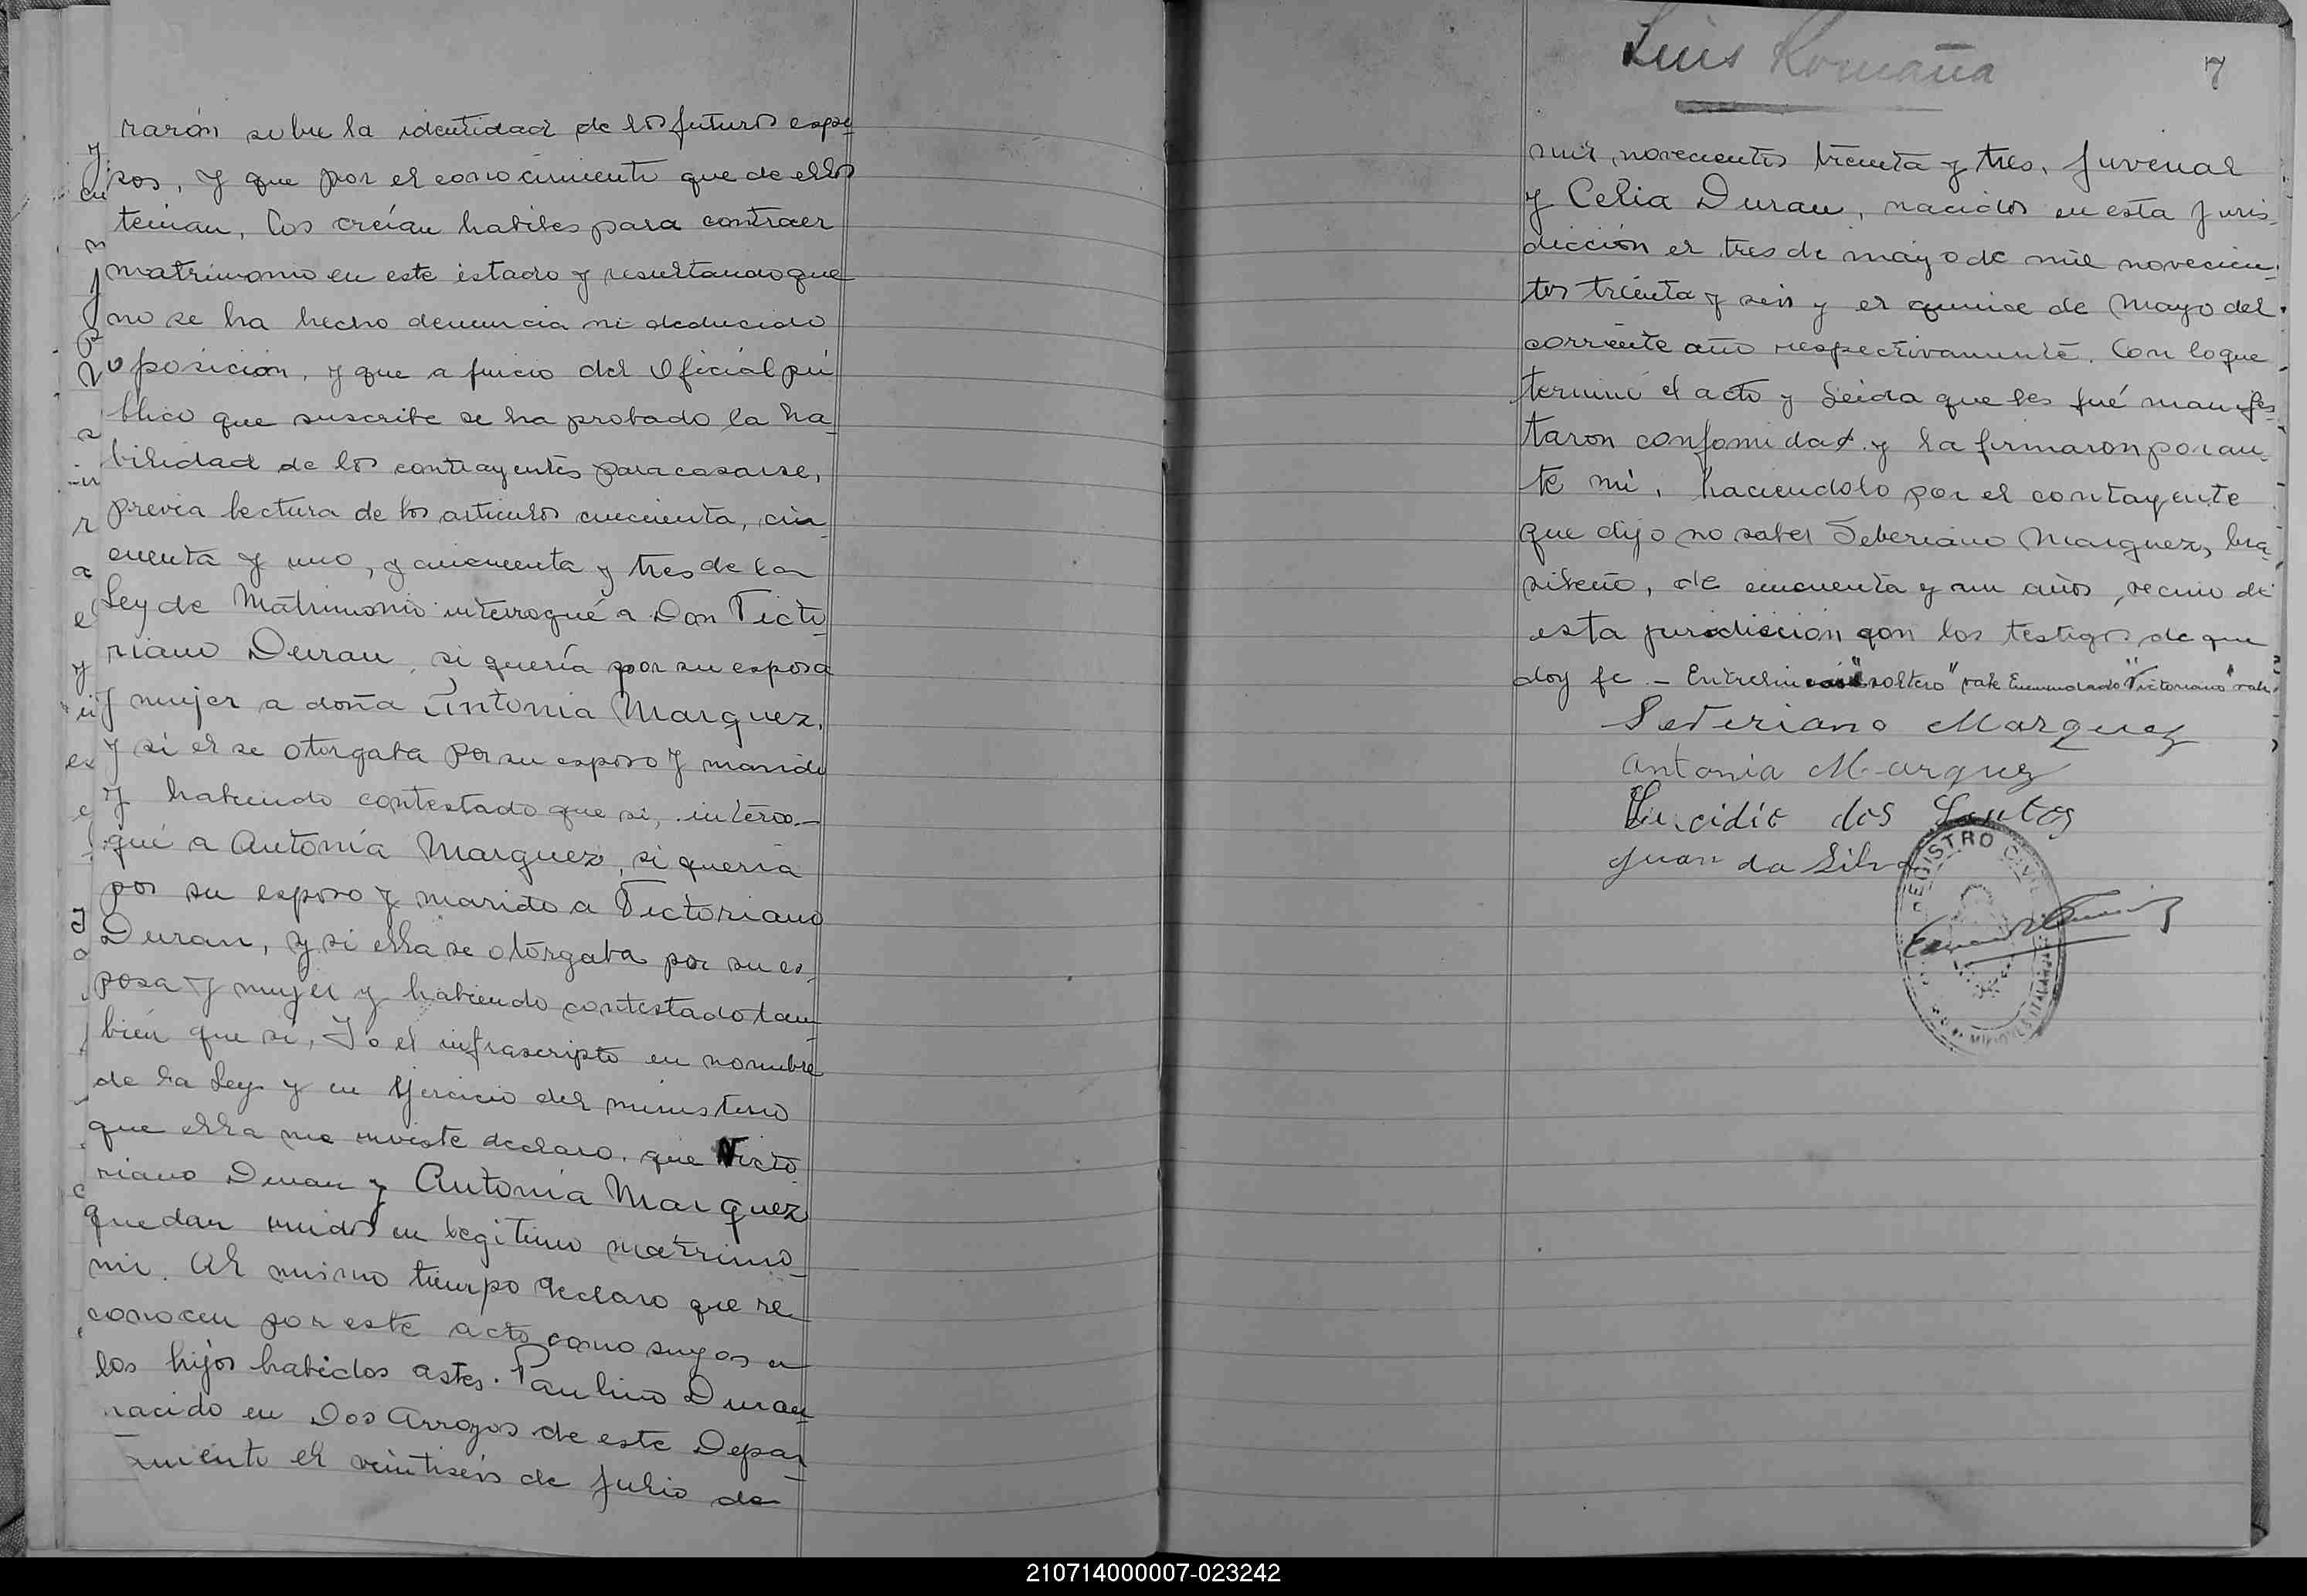 raron sobre la identidad de los futuros espo-
sos, y que por el conocimiento que de ellos
tenian, los creían habiles para contraer
matrimonio en este estado y resultando que
no se ha hecho denuncia ni deducido
oposicion, y que a juicio del Oficial pú
blico que suscribe se ha probado la ha-
bilidad de los contrayentes para casarse,
previa lectura de los articulos cincuenta, cin-
cuenta y uno, y cincuenta y tres de la
Ley de Matrimonio interrogué a Don Victo-
riano Duran, si quería por su esposa
y mujer a doña Antonia Marquez,
y si él se otorgaba por su esposo y marido
y habiendo contestado que si, interro-
gué a Antonía Marquez, si quería
por su esposo y marido a Victoriano
Duran, y si ella se otorgaba por su es-
posa y mujer y habiendo contestado tam-
bién que si, Yo el infrascripto en nombre
de la Ley y en ejercicio del ministerio
que ella me inviste declaro que Victo
riano Duran y Antonia Marquez
quedan unidos en legitimo matrimo-
nio. Al mismo tiempo declaro que re
conocen por este acto como suyos a
los hijos habidos antes. Paulino Duran
nacido en Dos Arroyos de este Depar
tamento el veintiseis de Julio de
Luis Romaña
7
mil novecientos treinta y tres, Juvenal
y Celia Duran, nacidos en esta Juris-
dicción el tres de mayo de mil novecien-
tos treinta y seis y el quince de Mayo del
corriente año respectivamente. Con lo que
terminó el acto y leida que les fué manifes-
taron confomidad y la firmaron por an-
te mi, haciendolo por el contayente
que dijo no saber Seberiano Marquez, bra-
sileño, de cincuenta y un años, vecino de
esta jurisdicción con los testigos de que
doy fe.- Entrelineas "soltero" vale Enmendado "Victoriano" vale.
Seberiano Marquez
Antonia Marquez
dos Santos
Juan da Silva
REGISTRO CIVIL
210714000007-023242